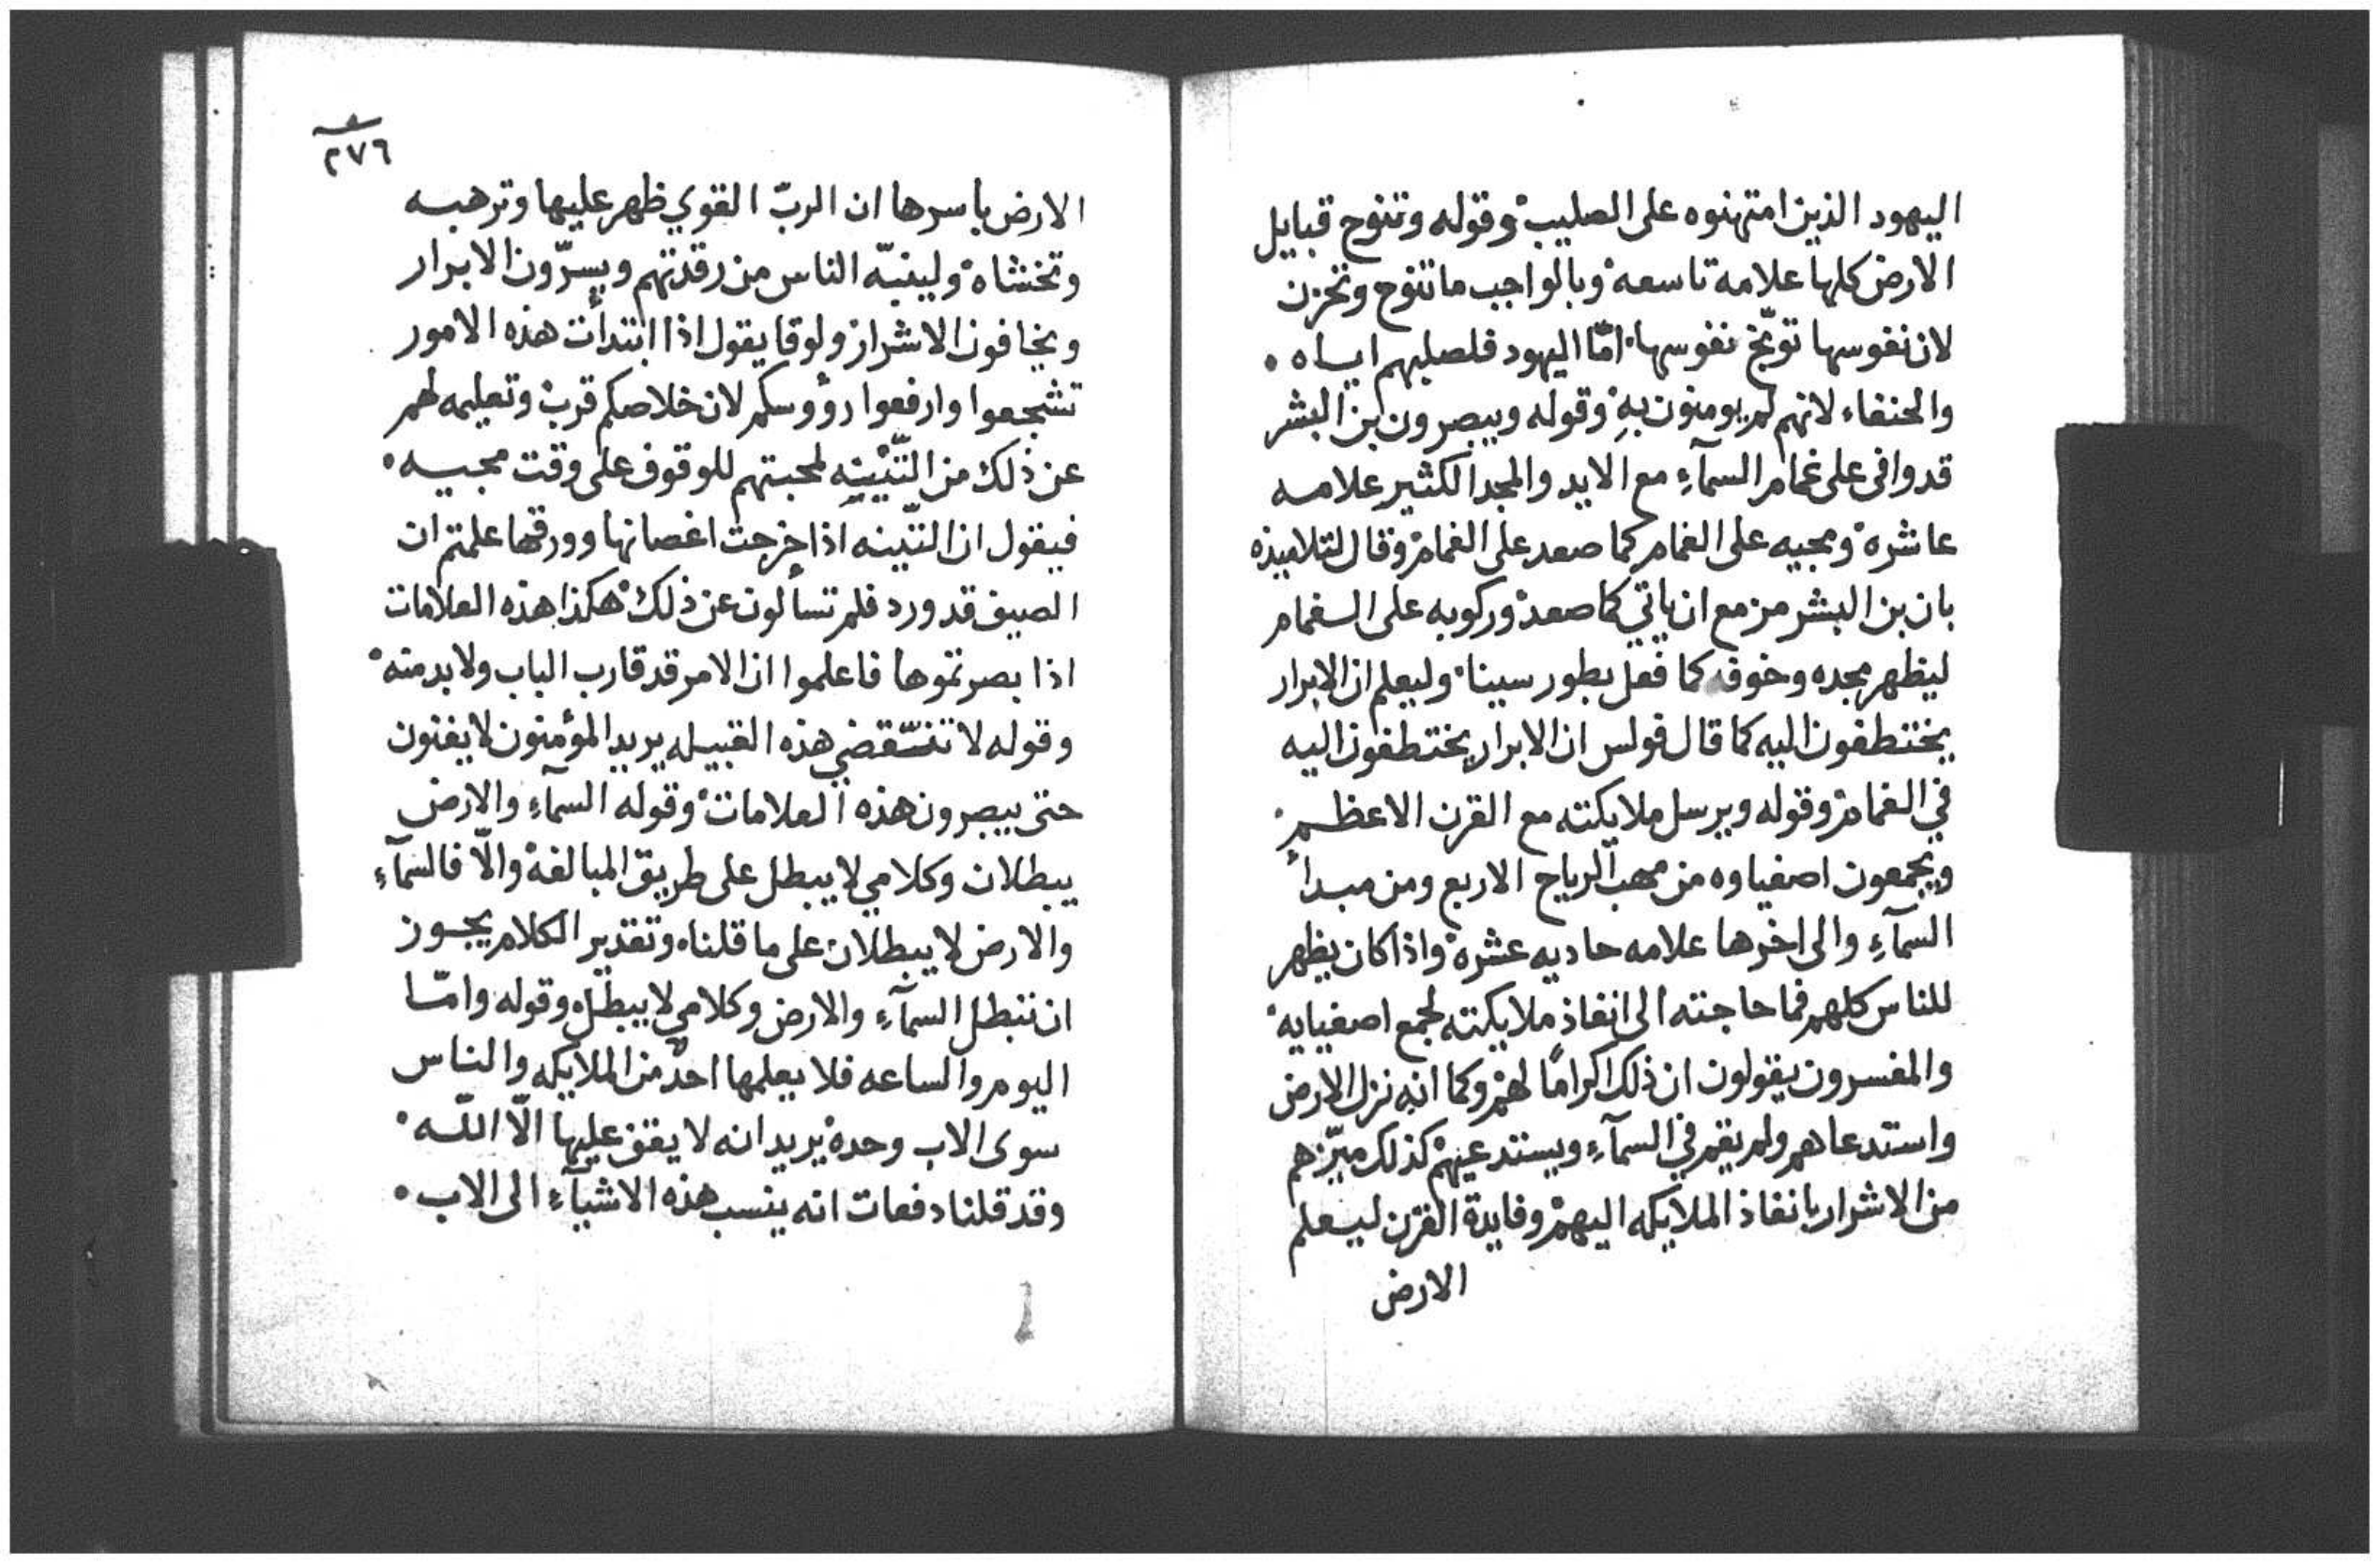 اليهود الذين امتهنوه على الصليب وقوله وتنوح قبايل
الارض كلها علامة تاسعه وبالواجب ما تنوح وتحزن
لان نفوسها توبّخ نفوسها امّا اليهود فلصلبهم اياه
والحنفاء لانهم لم يومنون بهِ وقوله ويبصرون بن البشر
قد وافى على غمام السمآءِ مع الايد والمجد الكثير علامه
عاشره ومجيه على الغمام كما صعد على الغمام وقال لتلاميذه
بان بن البشر مزمع ان ياتي كما صعد وركوبه على الغمام
ليظهر مجده وخوفه كما فعل بطور سينا وليعلم ان الابرار
يختطفون اليه كما قال فولس ان الابرار يختطفون اليه
في الغمام وقوله ويرسل ملايكته مع القرن الاعظم
ويجمعون اصفياوه من مهب الرياح الاربع ومن مبدأ
السمآءِ والى اخرها علامه حاديه عشره واذا كان يظهر
للناس كلهم فما حاجته الى انفاذ ملايكته لجمع اصفيايه
والمفسرون يقولون ان ذلك اكرامًا لهم وكما انه نزل الارض
واستدعاهم ولم يقم في السمآءِ ويستدعيهم كذلك ميّزهم
من الاشرار بانفاذ الملايكه اليهم وفايدة القرن ليعلم
الارض
٢٧٦
الارض باسرها ان الربّ القوي ظهر عليها وترهبه
وتخشاه ولينبّه الناس من رقدتهم ويسرّون الابرار
ويخافون الاشرار ولوقا يقول اذا ابتدأت هذه الامور
تشجعوا وارفعوا رؤوسكم لان خلاصكم قرب وتعليمه لهم
عن ذلك من التّينِه لمحبتهم للوقوف على وقت مجيه
فيقول ان التّينه اذا خرجت اغصانها وورقها علمتم ان
الصيف قد ورد فلم تسألون عن ذلك هكذا هذه العلامات
اذا بصرتموها فاعلموا ان الامر قد قارب الباب ولا بد منه
وقوله لا تنقضي هذه القبيله يريد المؤمنون لا يفنون
حتى يبصرون هذه العلامات وقوله السمآءِ والارض
يبطلان وكلامي لا يبطل على طريق المبالغه والّا فالسمآءِ
والارض لا يبطلان على ما قلناه وتقدير الكلام يجوز
ان تبطل السمآءِ والارض وكلامي لا يبطل وقوله وامّا
اليوم والساعه فلا يعلمها احدٌ من الملايكه والناس
سوى الاب وحده يريد انه لا يقف عليها الّا اللّه
وقد قلنا دفعات انه ينسب هذه الاشيآءِ الى الاب